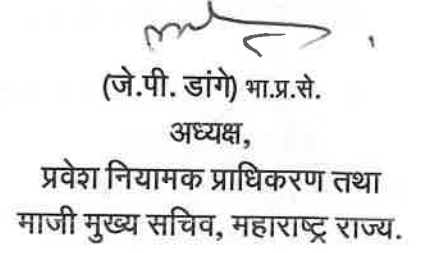 (जे.पी. डांगे) भा.प्र.से.
अध्यक्ष,
प्रवेश नियामक प्राधिकरण तथा
माजी मुख्य सचिव, महाराष्ट्र राज्य.